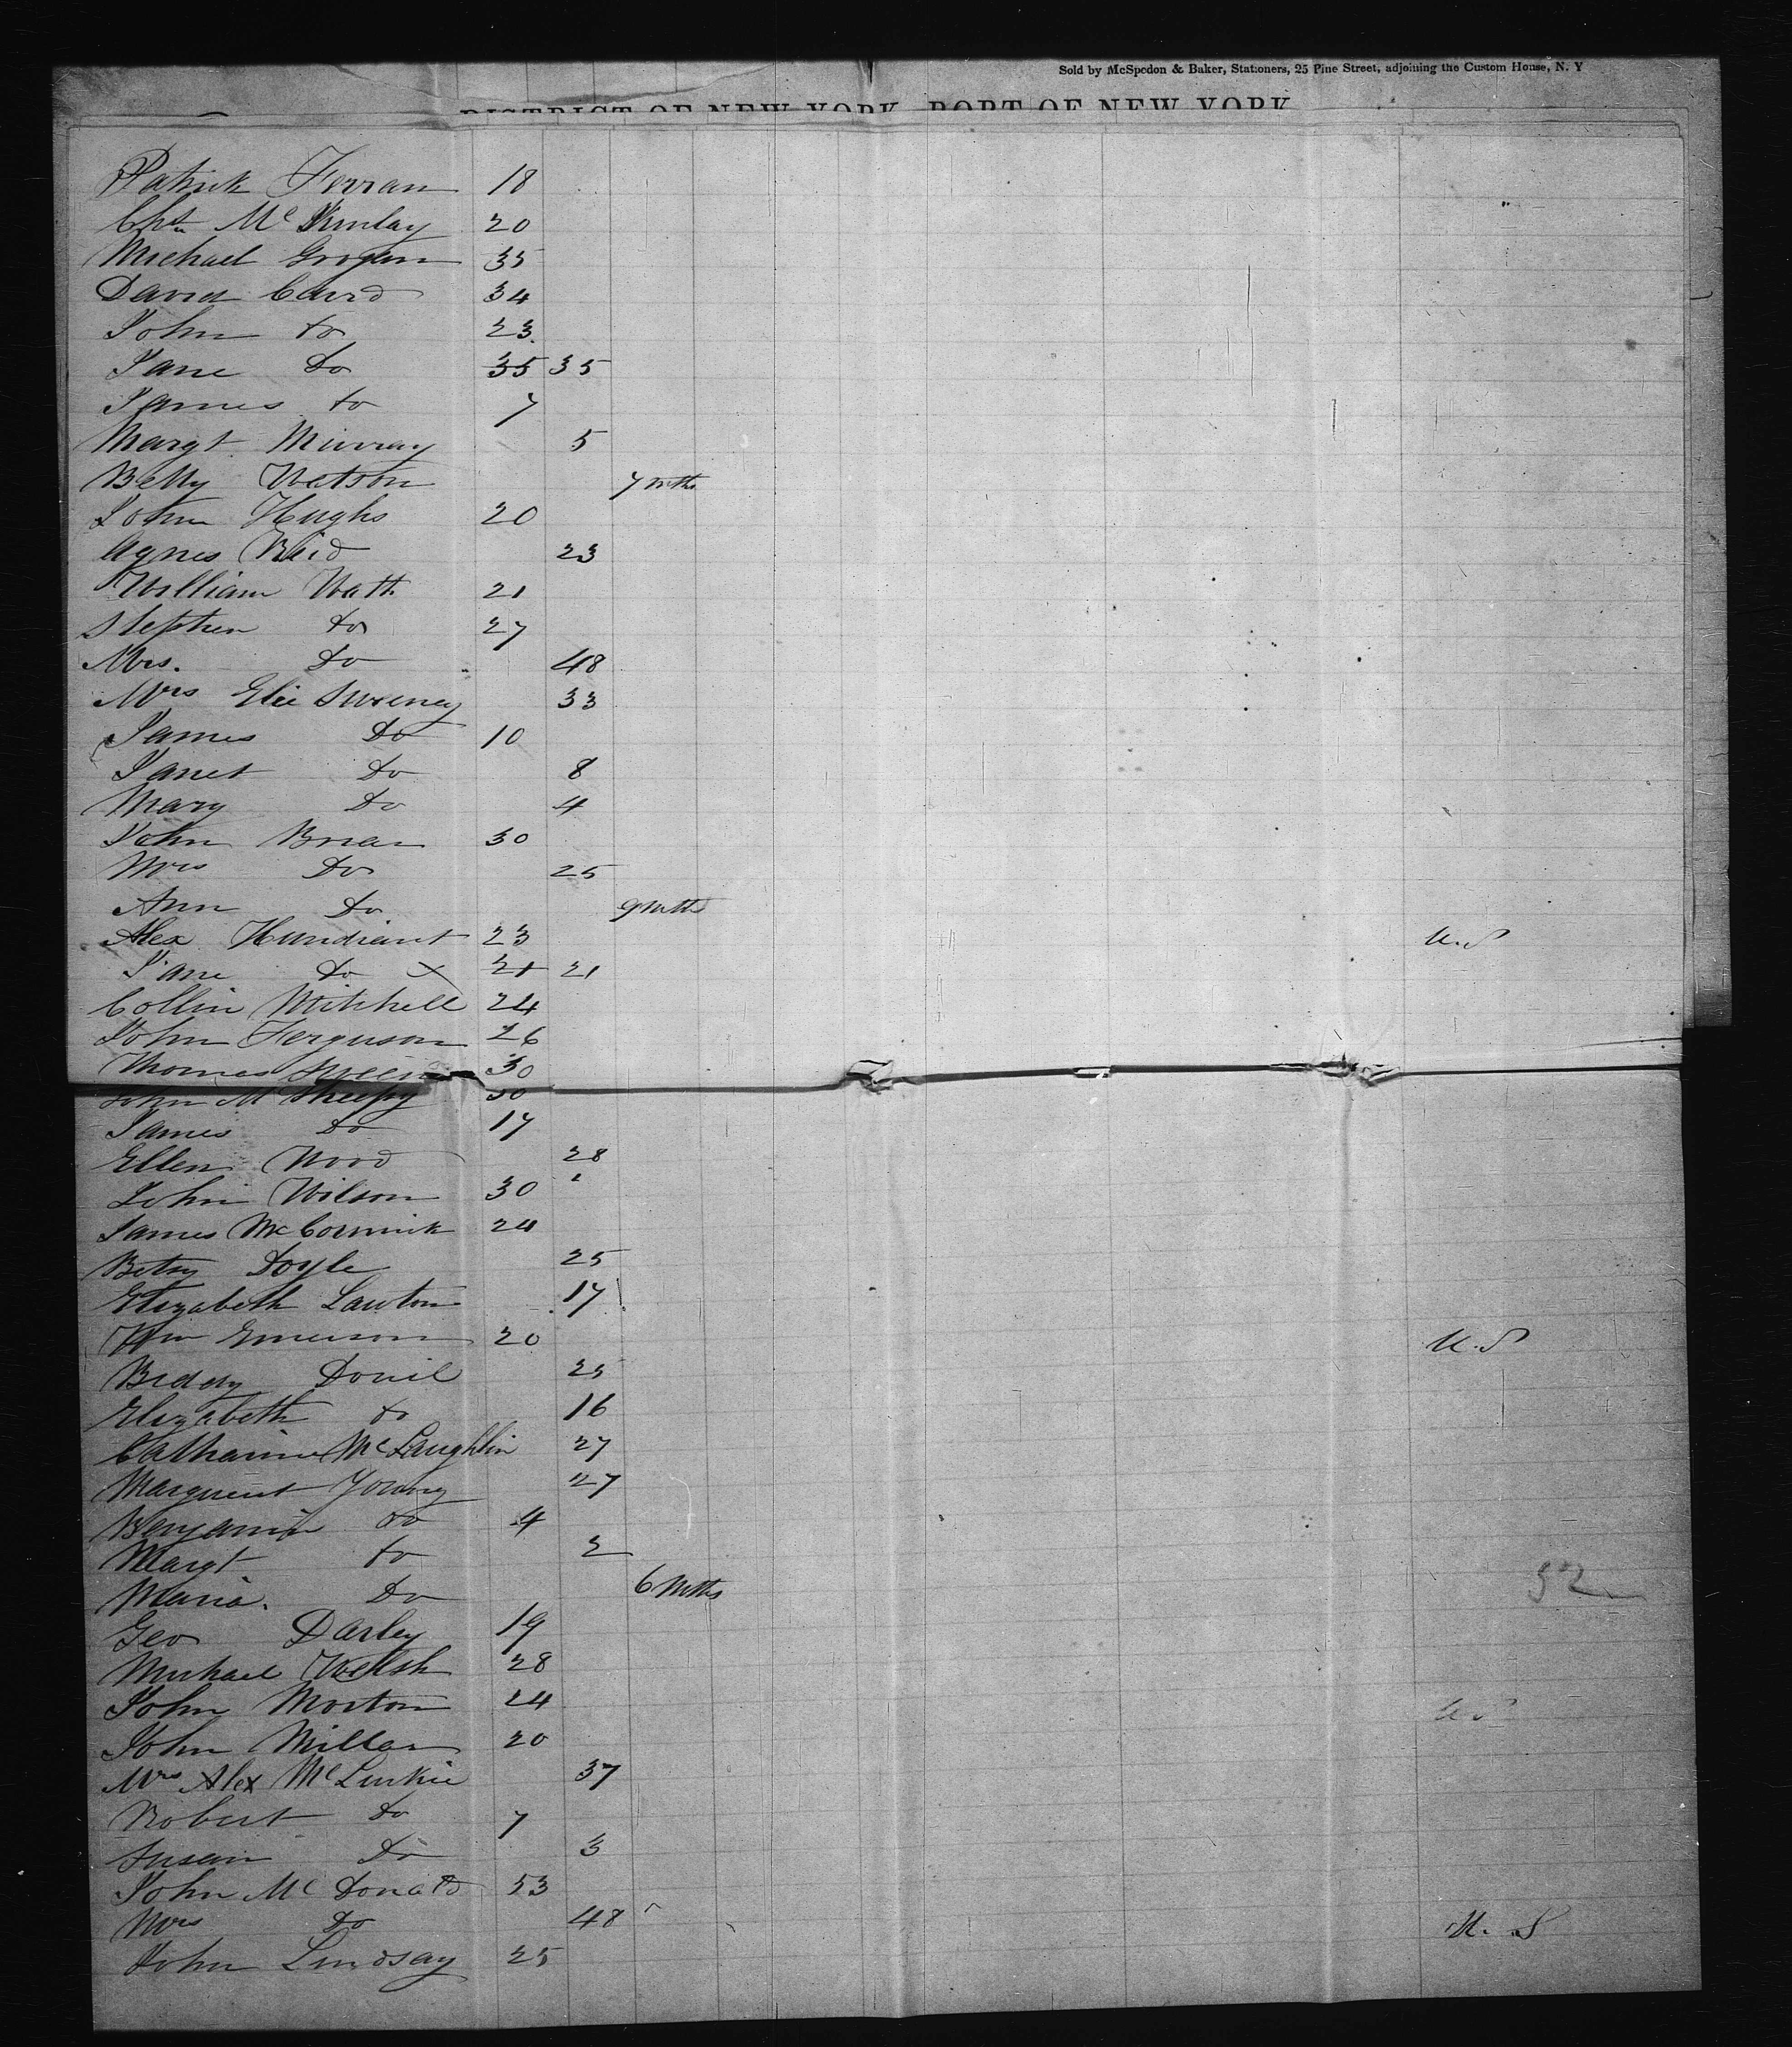 Sold by McSpedon & Baker, Stationers, 25 Pine Street, adjoining the Custom House, N. Y
DISTRICT OF NEW YORK, PORT OF NEW YORK
Patrick Ferran 18
Mc 20
Michael Grogan 35
David Caird 34
John do 23
Jane Do 35 35
James do 7
Margt. Murray 5
Betty Watson 7 mths
John Hughs 20
Agnes Reid 23
William Watt 21
Stephen do 27
Mrs. Do 48
Mrs Sweeney 33
James Do 10
Janet Do 8
Mary Do 4
John Brian 30
Mrs Do 25
Ann Do 9 Mths
Alex 23 U.S
Jane Do x 21 21
Collin Mitchell 24
John Ferguson 26
Thomas 30
John Mc 30
James Do 17
Ellen Wood 28
John Wilson 30
James McCormick 24
Betsy Doyle 25
Elizabeth Lawton 17
Wm Emerson 20 U.S
Biddy 25
Elizabeth do 16
Catharine McLaughlin 27
Young 27
Benjamin do 4
Margt do 2
Maria. Do 6 Mths
52
Geo Darley 19
Michael Welsh 28
John Morton 24 U S
John Millar 20
Mrs Alex McLuckie 37
Robert Do 7
Susan Do 3
John McDonald 53
Mrs Do 48 U. S
John Lindsay 25